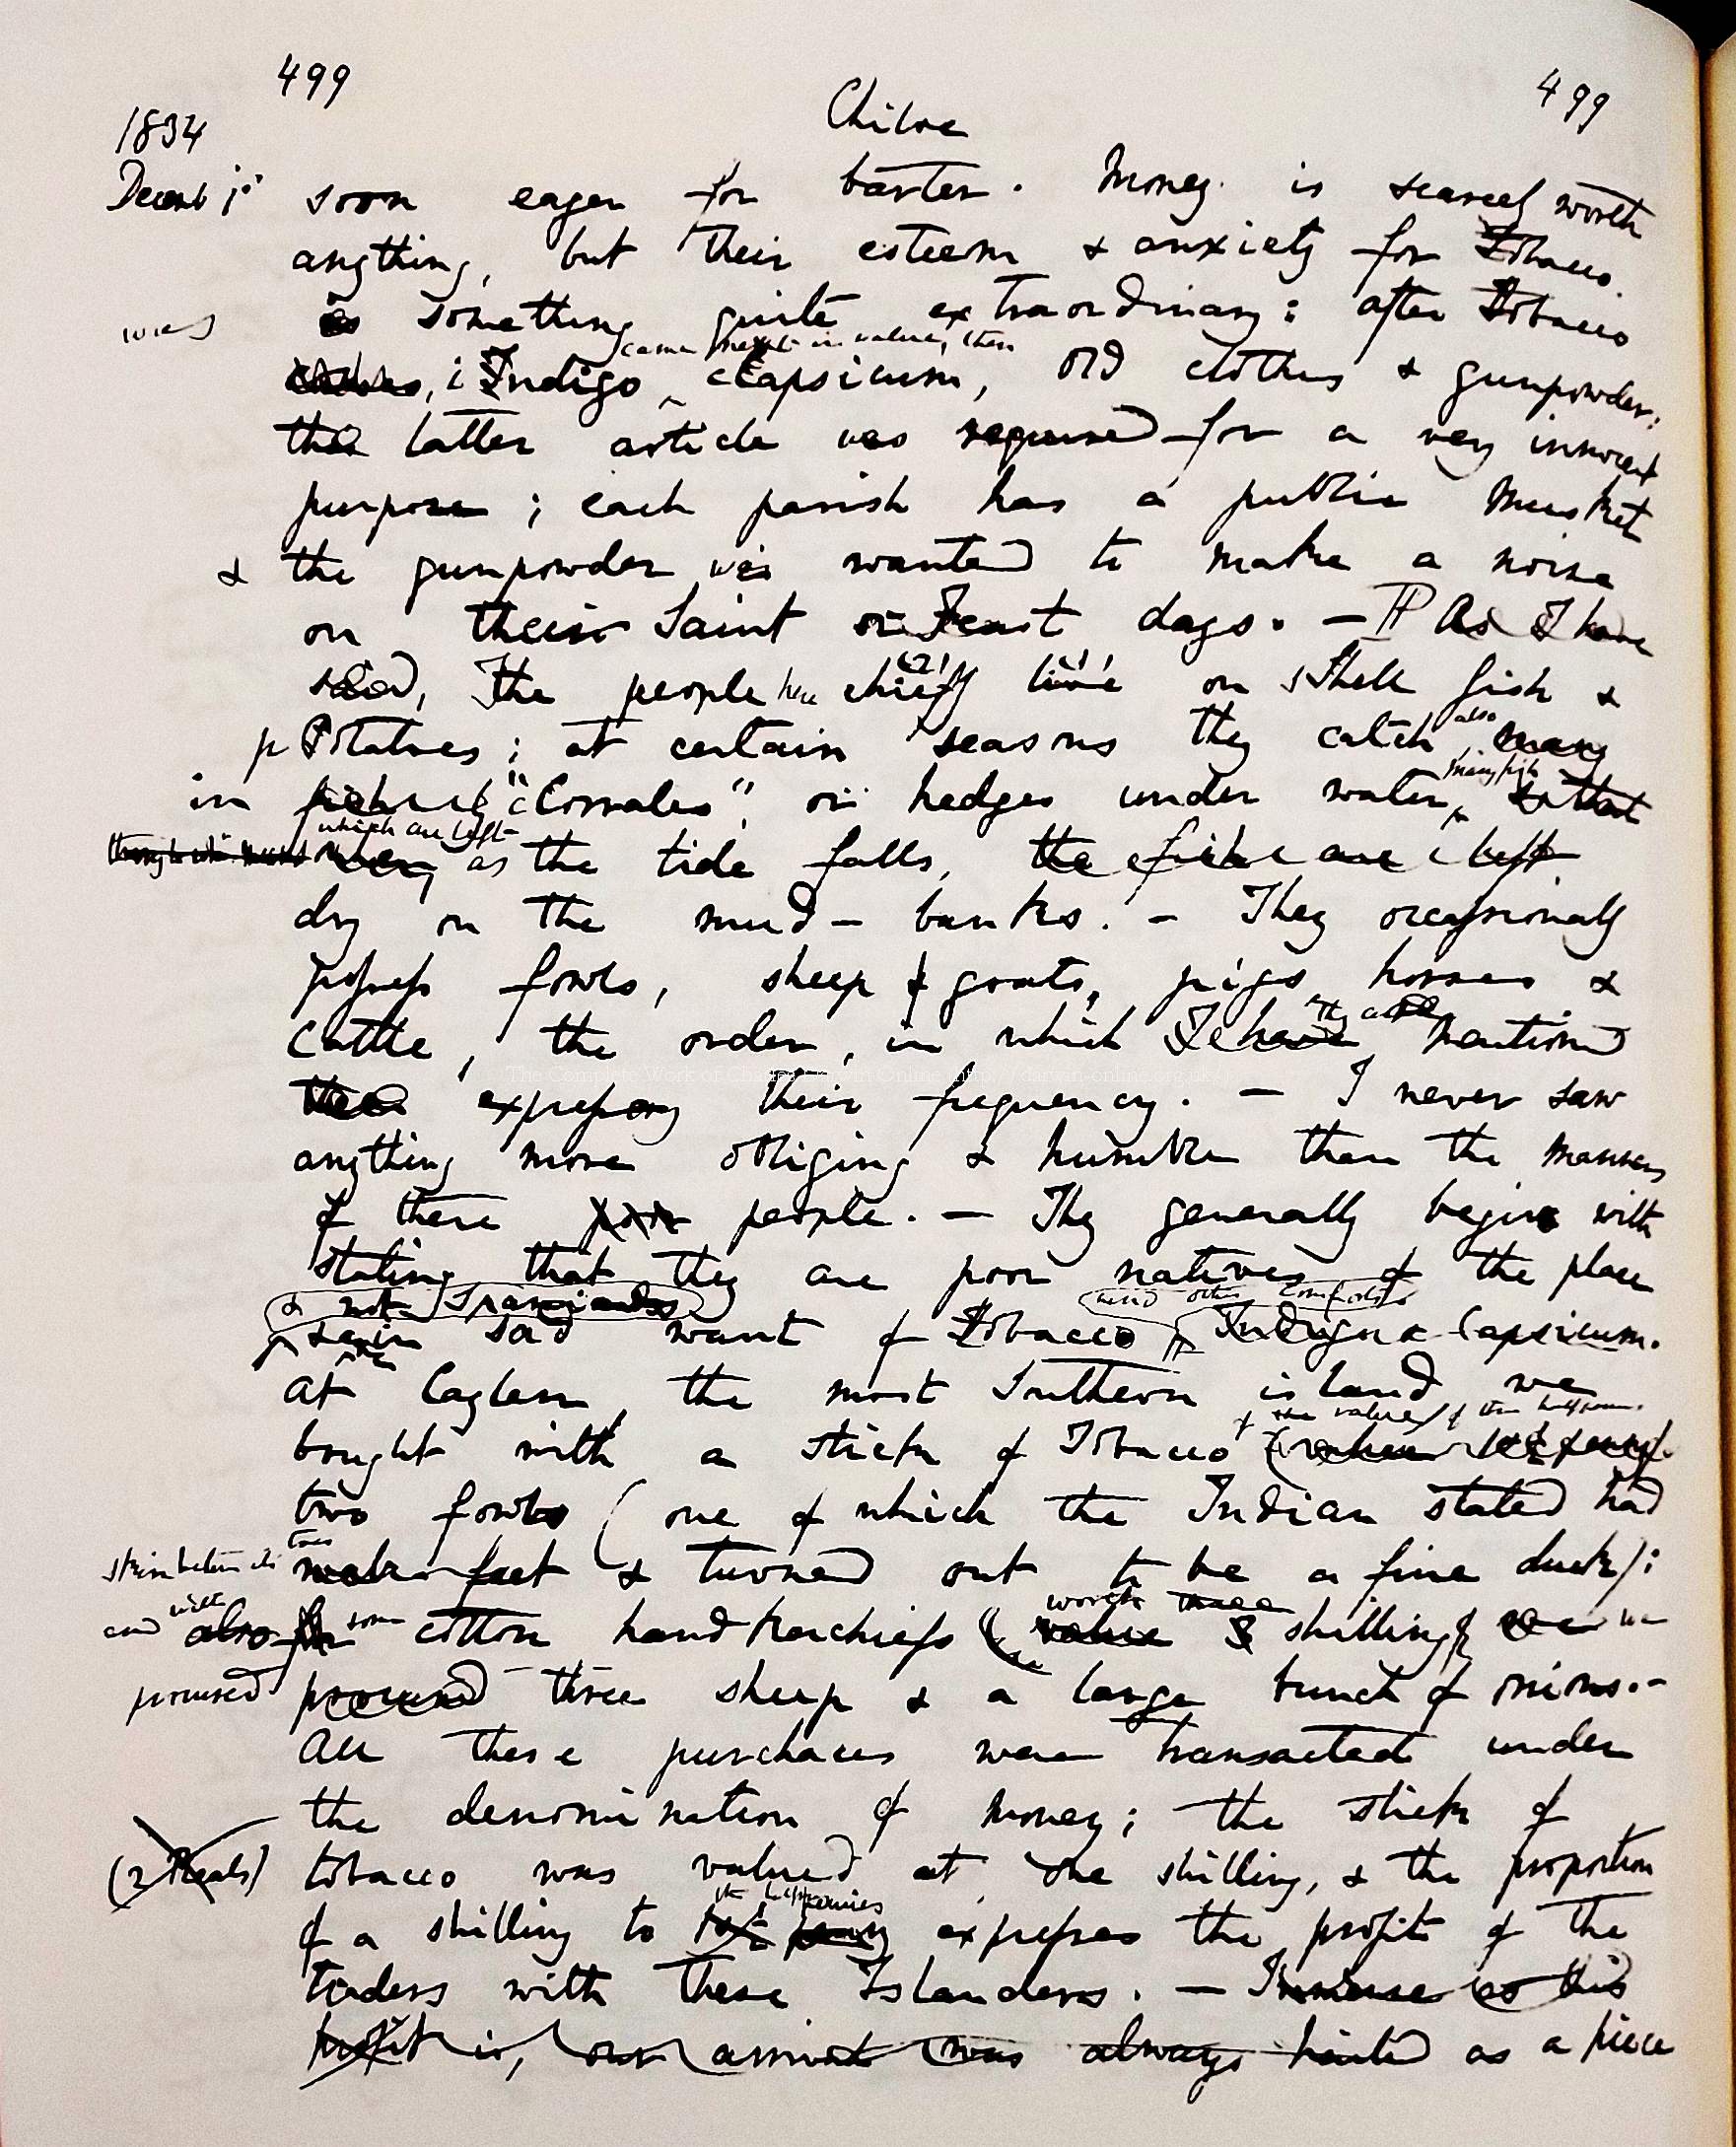 499
Chiloe
499
1834
Decemb 1st
soon eager for barter. Money is scarcely worth
anything, but their esteem & anxiety for Tobacco
was is something quite extraordinary: after Tobacco
came next in value, then
Indigo Capsicum, old clothes & gunpowder:
the latter article was required for a very innocent
purpose; each parish has a public Musket
& the gunpowder was wanted to make a noise
on their Saint or Feast days. — As I have
said, The people here chiefly live on Shell fish &
(2) (1)
Potatoes; at certain seasons they catch also many
in "Corrales", or hedges under water, many fish so that
which are left
as the tide falls, the fish are left
dry on the mud-banks. — They occasionally
possess fowls, sheep & goats, pigs horses &
cattle, the order, in which I have they are mentioned
expressing their frequency. — I never saw
anything more obliging & humble than the manners
of these poor people. — They generally begin with
stating that they are poor natives of the place
& not Spaniards and other comforts
& in sad want of Tobacco Indigo & Capsicum.
At Caylen, the most Southern island, we
of the value of three halfpence.
bought with a stick of Tobacco (value 1½ penny)
two fowls (one of which the Indian stated had
skin between its toes web feet & turned out to be a fine duck):
worth three
and with also for some cotton handkerchiefs (value 3 shillings we
procured procured three sheep & a large bunch of onions. —
All these purchases were transacted under
the denomination of money; the stick of
(2 Reals) tobacco was valued at one shilling, & the proportion
halfpennies
of a shilling to 1½ penny expresses the profit of the
traders with these Islanders. — Immense as this
profit is, our arrival was always hailed as a piece
The Complete Work of Charles Darwin Online